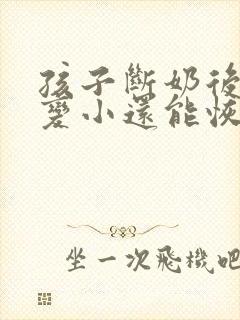 孩子斷奶後
變小還能恢
坐一次飛機吧